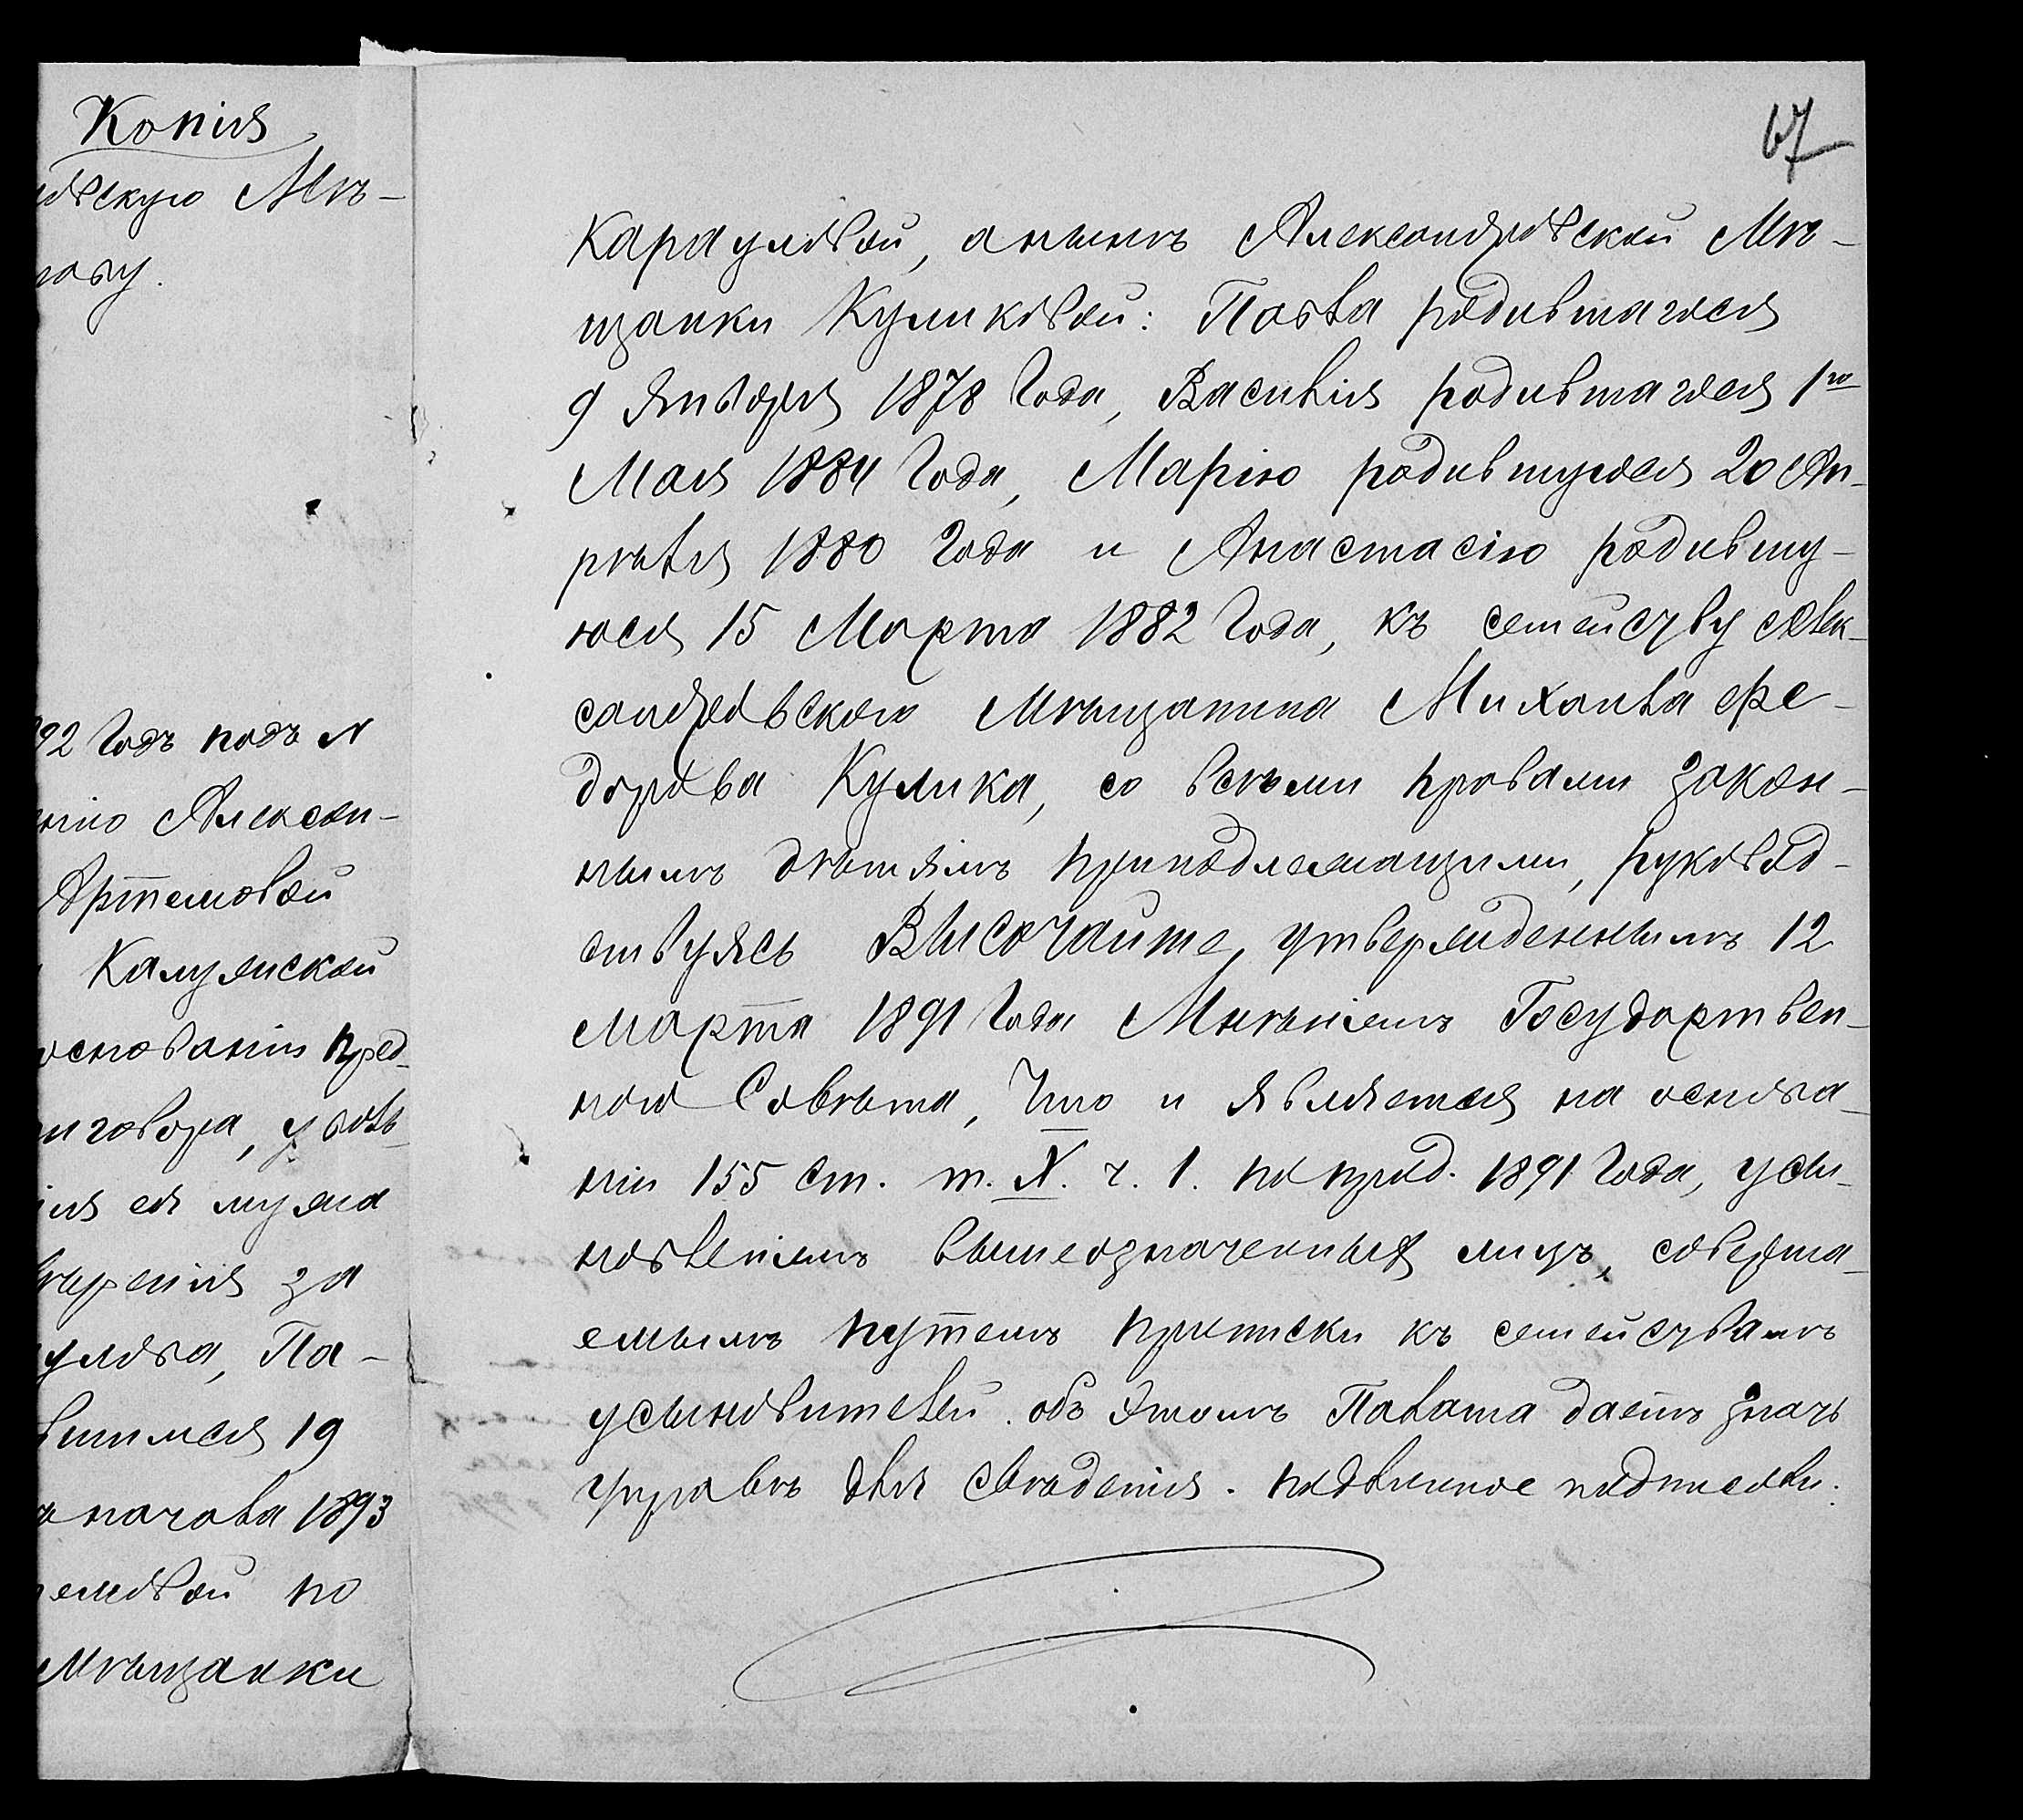 Копія
Мѣ-
92 годъ подъ №
Алексан-
Артемовой
Калужской
основаніи пред-
ея мужа
за
Па-
19
начала 1893
по
Мѣщанки
67
Карауловой, а нынѣ Александровской Мѣ-
щанки Куликовой: Павла родившагося
9 Января 1878 года, Василія родившагося 1го
Мая 1884 года, Марію родившуюся 20 Ап-
рѣля 1880 года и Анастасію родившу-
юся 15 Марта 1882 года, къ семейству Алек-
сандровского Мѣщанина Михаила Фе-
дорова Кулика, со всѣми правами закон-
нымъ дѣтямъ принадлежащими, руковод-
ствуясь Высочайше утвержденнымъ 12
марта 1891 года Мнѣніемъ Государствен-
ного Совѣта, что и является на основа-
ніи 155 ст. т. X. ч. 1. по прод. 1891 года, усы-
новленіемъ вышеозначенныхъ лицъ, соверша-
емымъ путемъ приписки къ семействамъ
усыновителей. объ этомъ Палата даетъ знать
Управѣ для свѣденія. подлинное подписали: